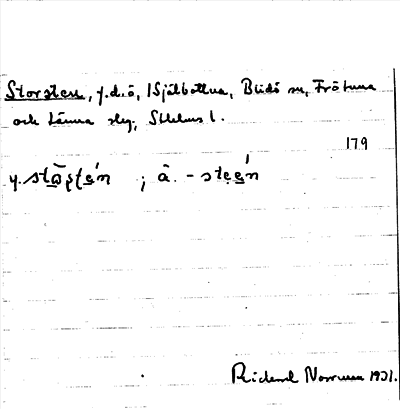 Storsten, y.d.ö, I Själbottna, Blidö sn, Frötuna
och Länna slg; Sthlms l.
179
y. stɷ̄ʂtén ; ä. - steén
Rickard Norrman 1931.